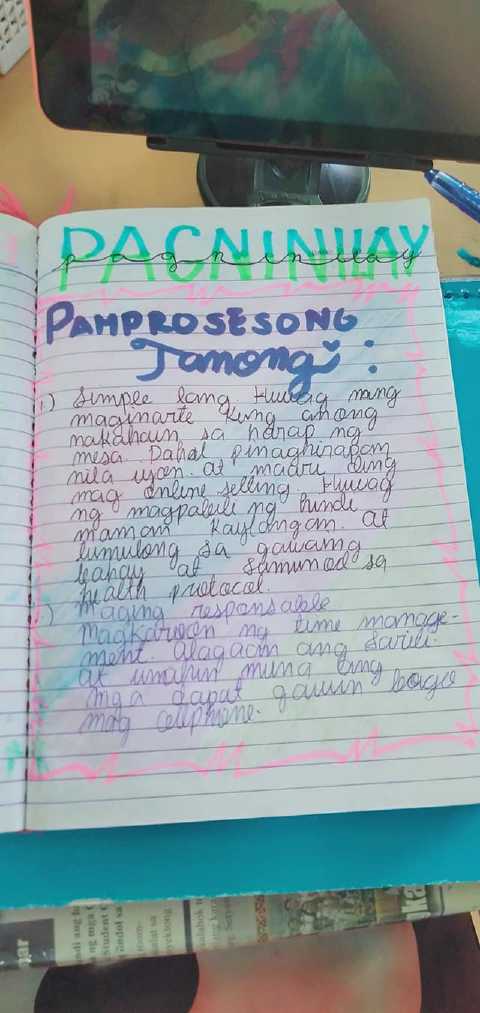 PAGNINILAY
pagninilay
PAMPROSESONG
Tanong:
1) Simple lang Huwag nang
maginarte kung anong
nakahain sa harap ng
mesa. Dahil pinaghirapan
nila iyon. at maari ding
mag online selling. Huwag
ng magpabili ng hindi
naman kaylangan. at
tumulong sa gawaing
bahay at sumunod sa
health protocol.
) Maging responsable
Magkaroon ng time manage-
ment. alagaan ang sarili.
at unahin muna ang
mga dapat gawin bago
mag cellphone.
ng mga
Student